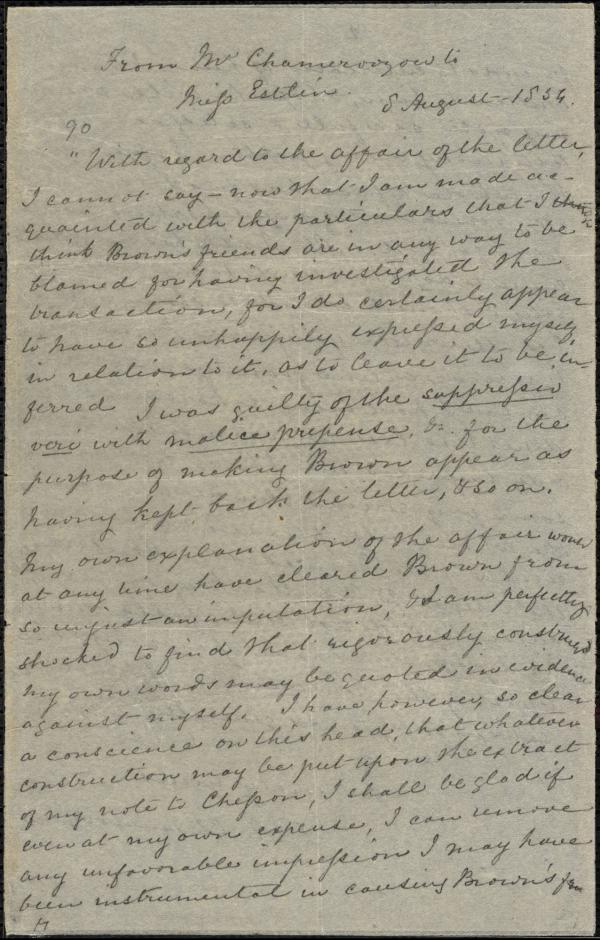 From Mr Chamerovzow to
Miss Estlin.
8 August - 1854.
90
"With regard to the affair of the letter,
I cannot say - now that I am made ac-
quainted with the particulars that I
think Brown's friends are in any way to be
blamed for having investigated the
transaction, for I do certainly appear
to have so unhappily expressed myself
in relation to it, as to leave it to be in-
ferred I was guilty of the suppressio
veri with malice prepense, &c. for the
purpose of making Brown appear as
having kept back the letter, & so on.
My own explanation of the affair would
at any time have cleared Brown from
so unjust an imputation, & I am perfectly
shocked to find that rigorously construed
my own words may be quoted in evidence
against myself. I have however, so clear
a conscience on this head, that whatever
construction may be put upon the extract
of my note to Chesson, I shall be glad if
even at my own expense, I can remove
any unfavorable impression I may have
been instrumental in causing Brown's